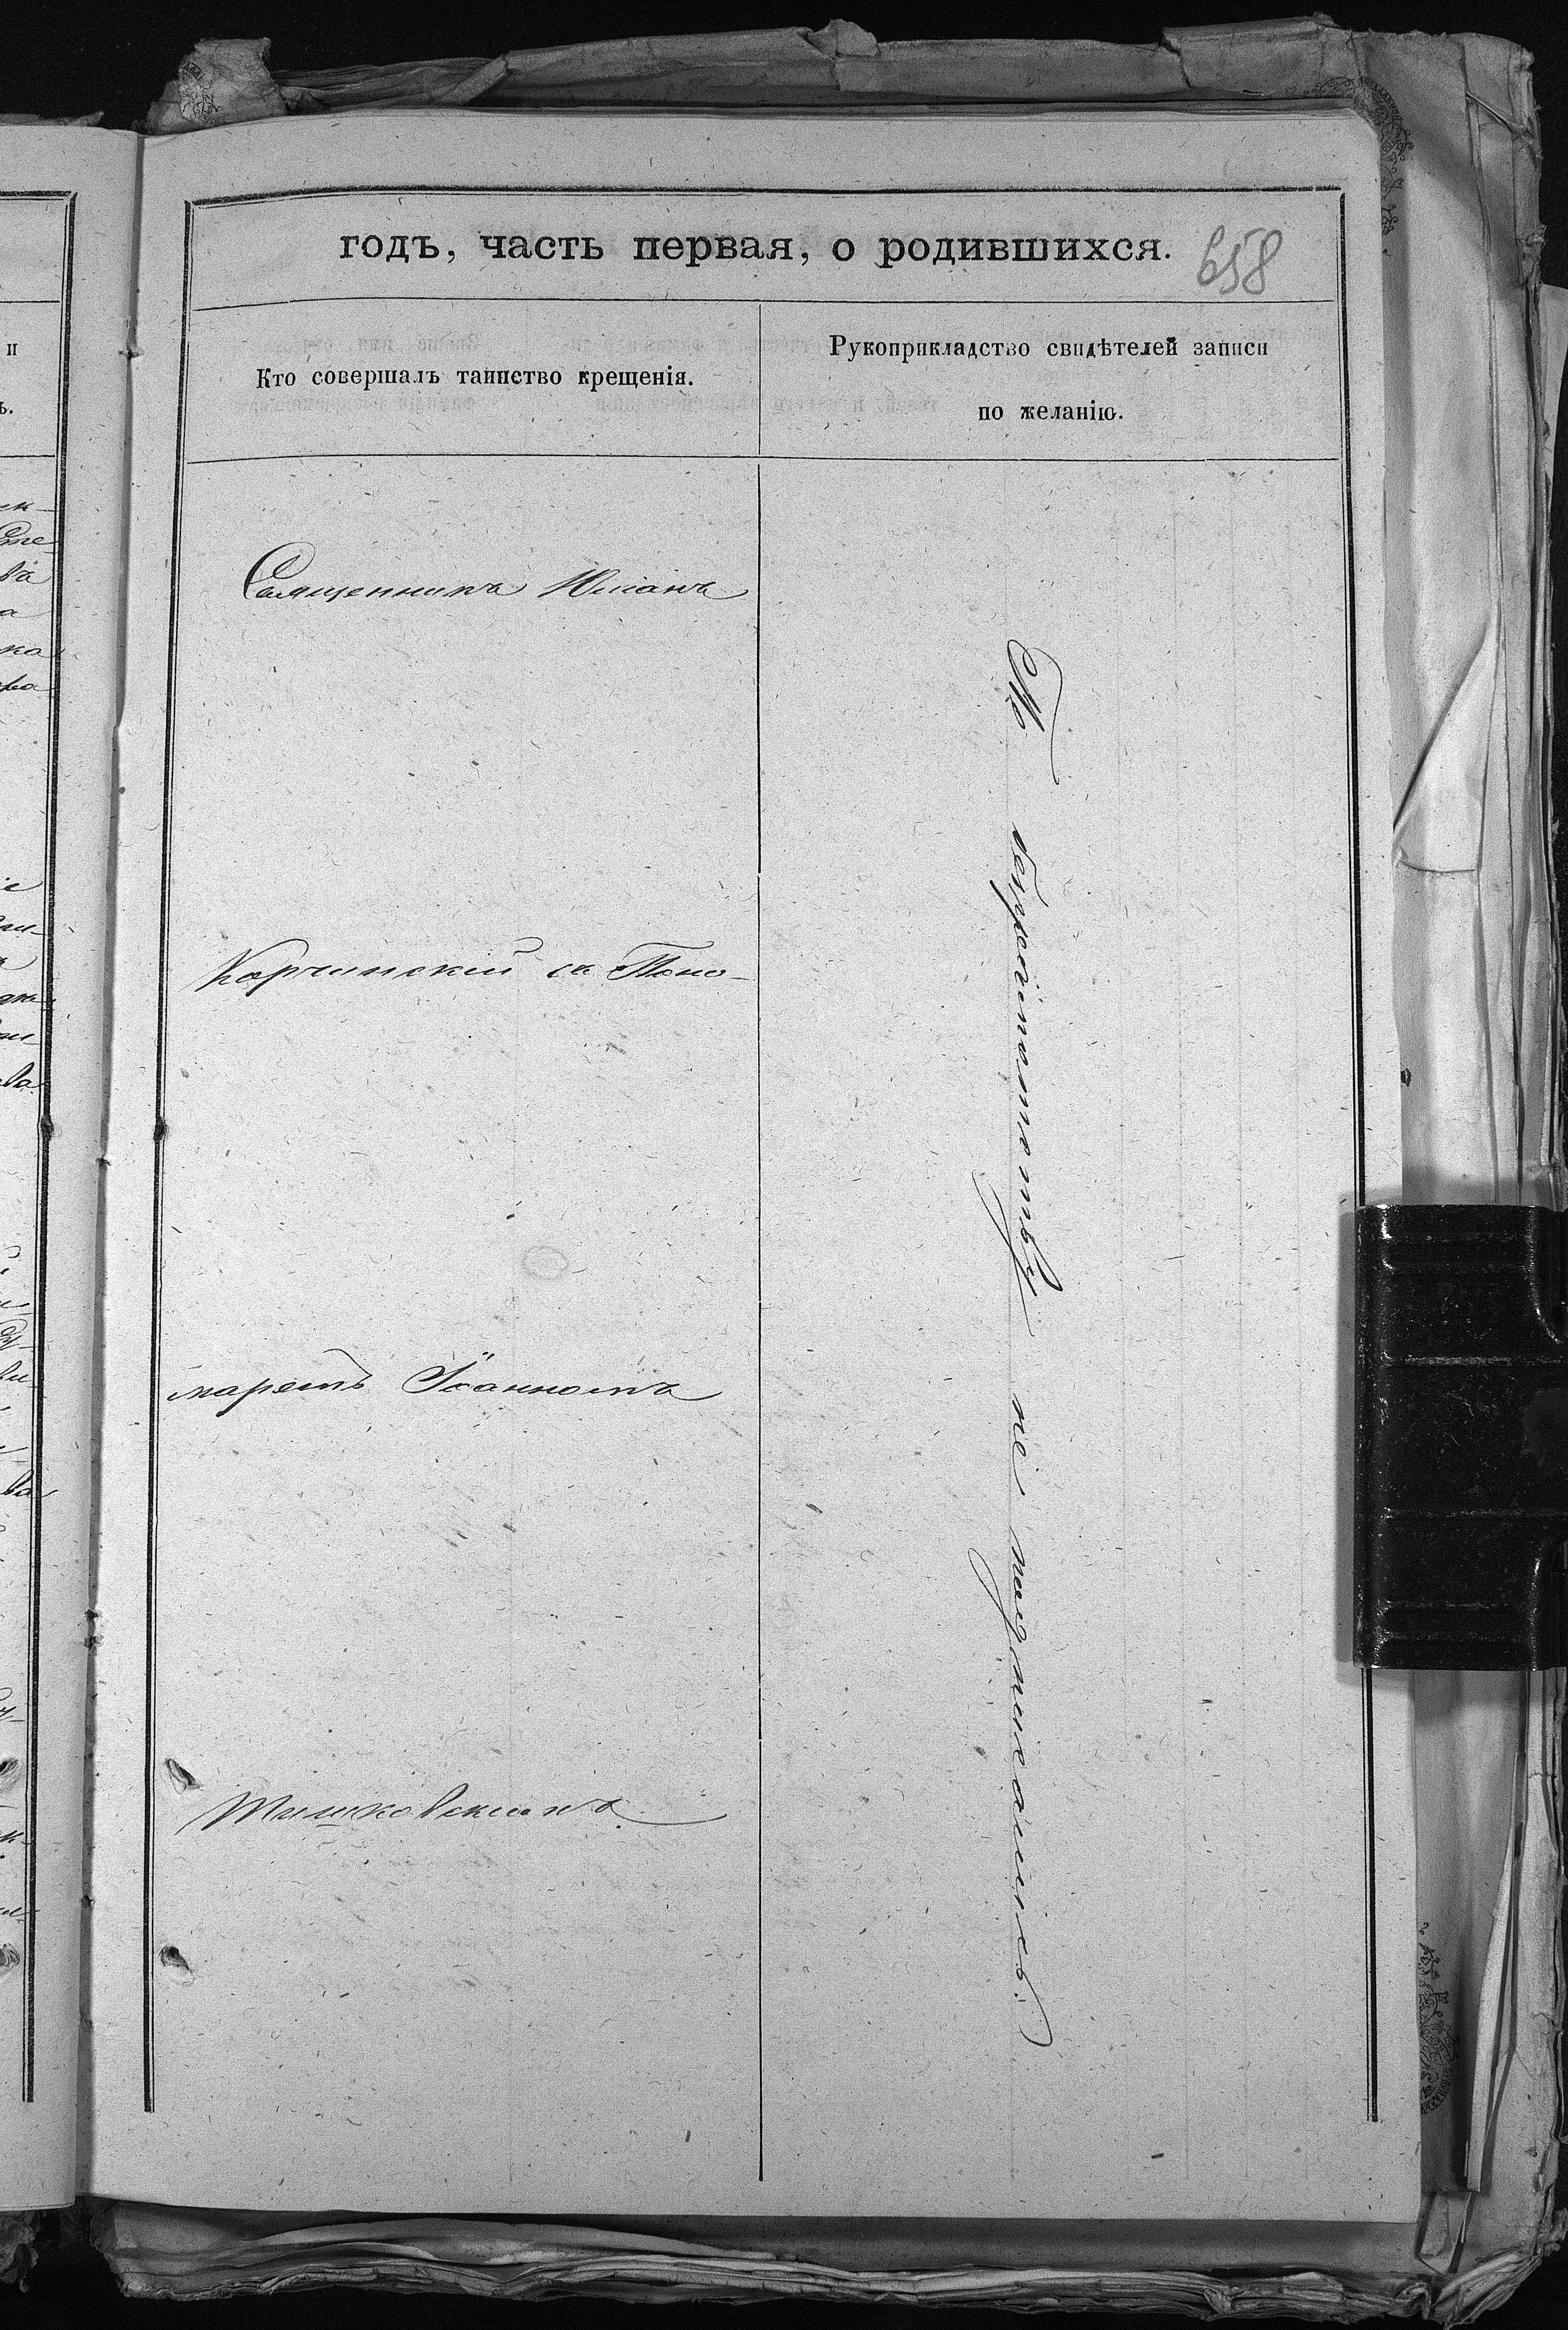 годъ, часть первая, о родившихся. 658
Кто совершалъ таинство крещенія.
Рукоприкладство свидѣтелей записи
по желанію.
Священникъ Юліанъ
Корчинскій съ Поно-
маремъ Іоанномъ
Тышковскимъ
По неграмотству не подписались